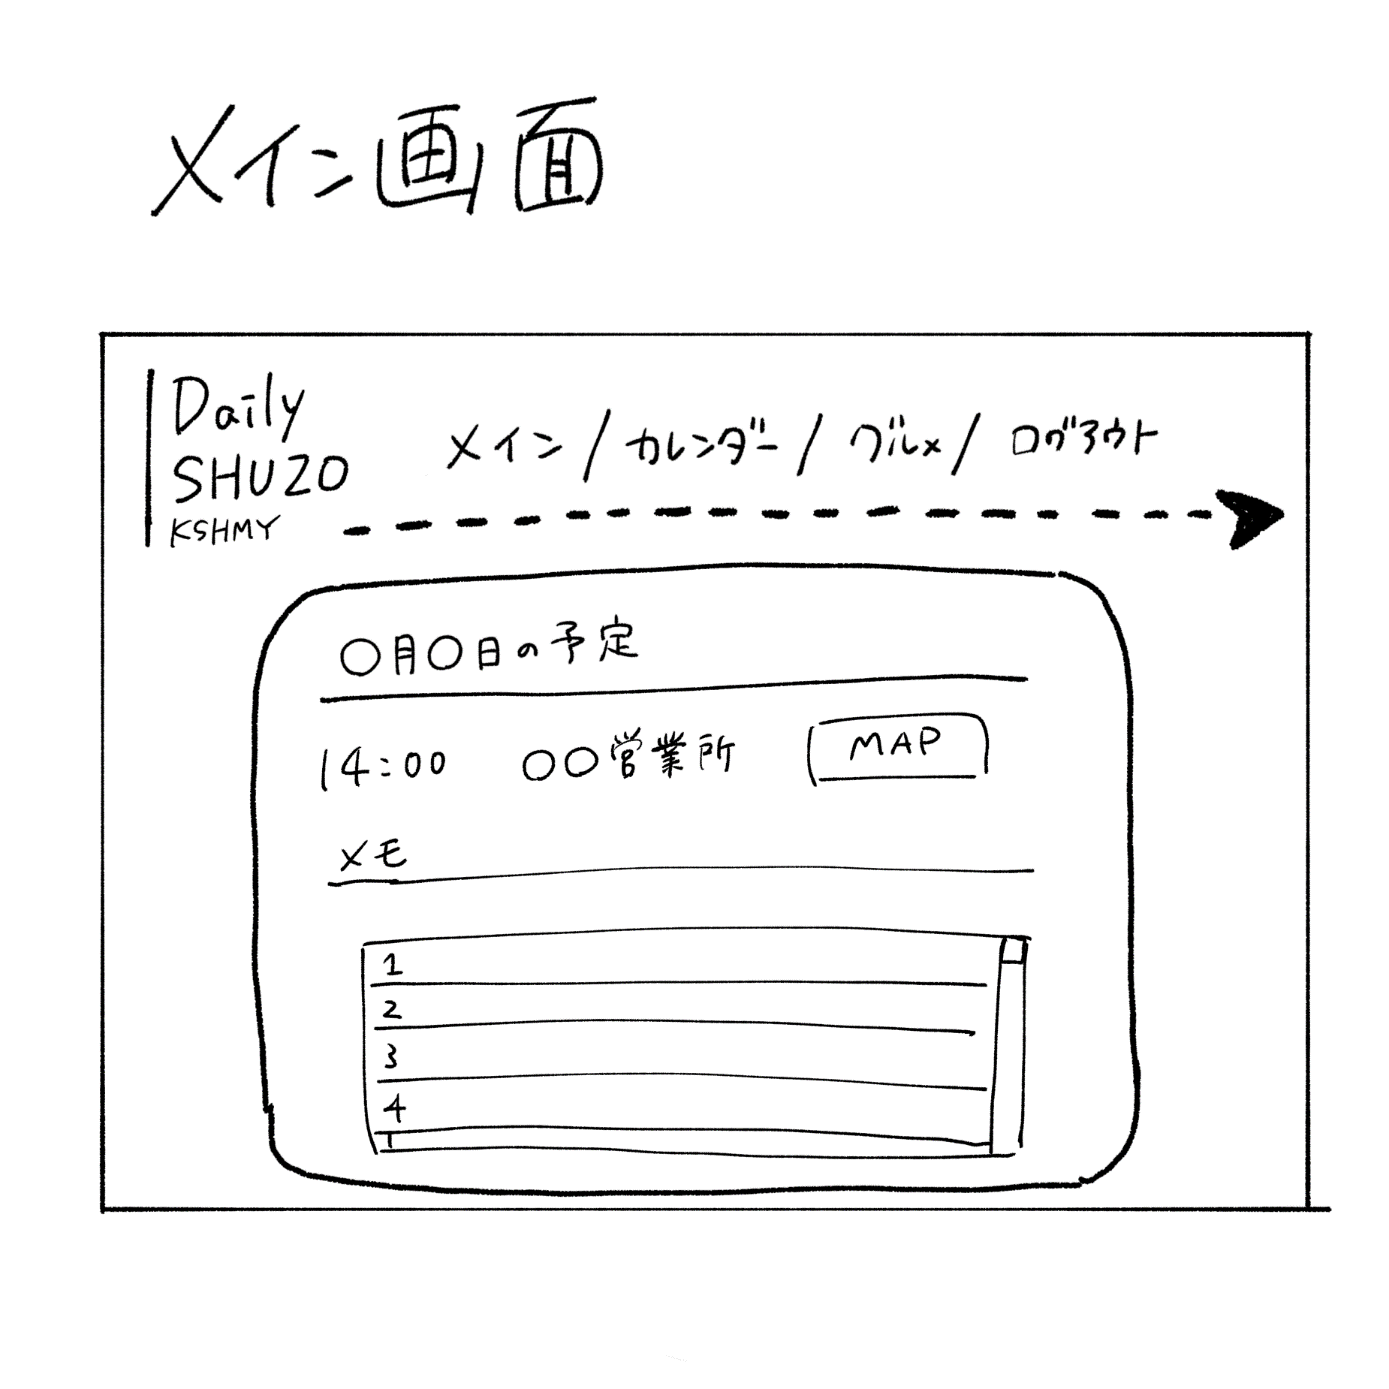 メイン画面
Daily
SHUZO
KSHMY
メイン/カレンダー/グルメ/ログアウト
○月○日の予定
14:00 ○○営業所 MAP
メモ
1
2
3
4